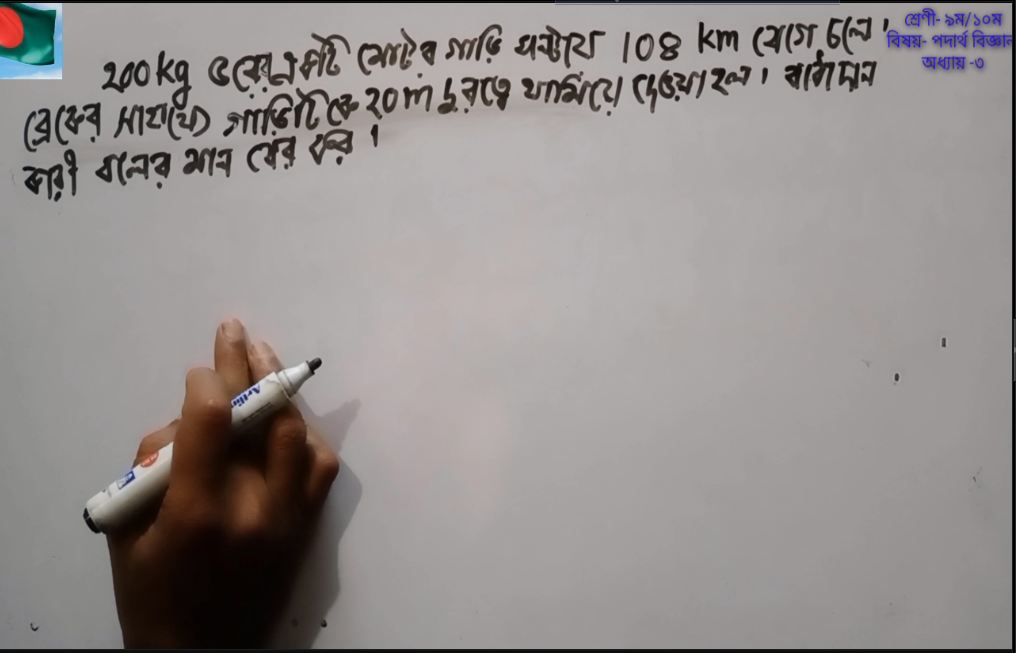 ২০০kg ভরের একটি মোটর গাড়ি ঘন্টায় 108 km বেগে চলে।
ব্রেকের সাহায্যে গাড়িটিকে ২০m দূরত্বে থামিয়ে দেওয়া হল। বাধাদান
কারী বলের মান বের কর।
শ্রেণী- ৯ম/১০ম
বিষয়- পদার্থ বিজ্ঞান
অধ্যায় -৩
Artline